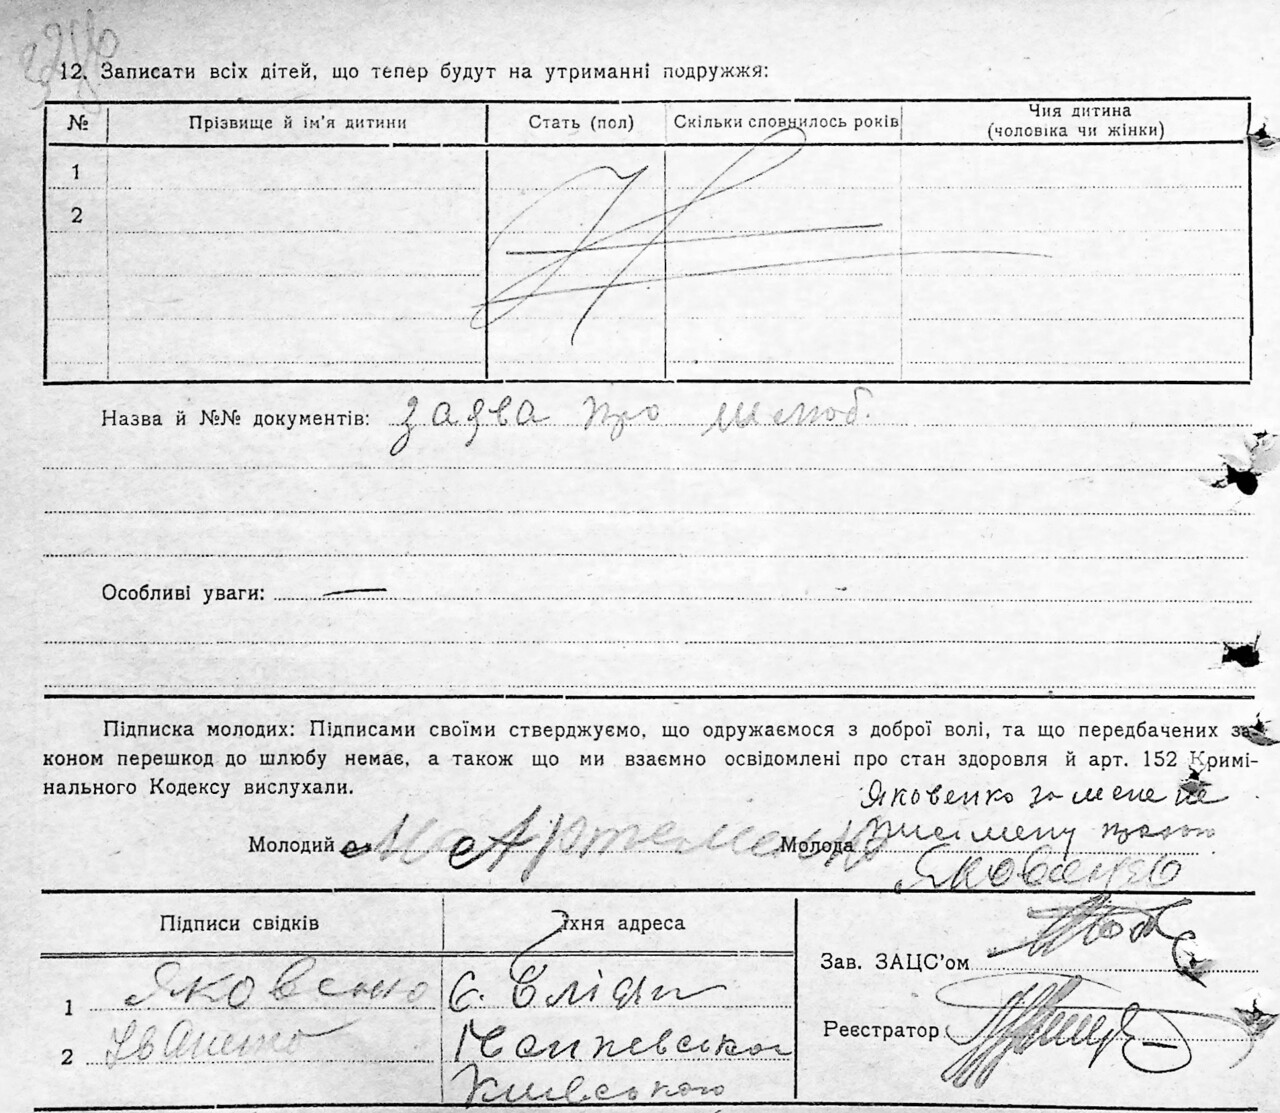 12. Записати всіх дітей, що тепер будут на утриманні подружжя:
№ Прізвище й ім'я дитини Стать (пол) Скільки сповнилось років Чия дитина
(чоловіка чи жінки)
1
2
Назва й №№ документів: заява про шлюб.
Особливі уваги: —
Підписка молодих: Підписами своїми стверджуємо, що одружаємося з доброї волі, та що передбачених за-
коном перешкод до шлюбу немає, а також що ми взаємно освідомлені про стан здоровля й арт. 152 Кримі-
нального Кодексу вислухали.
Яковенко за мене не
Молодий Артеменко Молода
Яковенко
Підписи свідків Їхня адреса
Зав. ЗАЦС'ом
1 Яковенко с.
Реєстратор
2 Іваненко
Київського